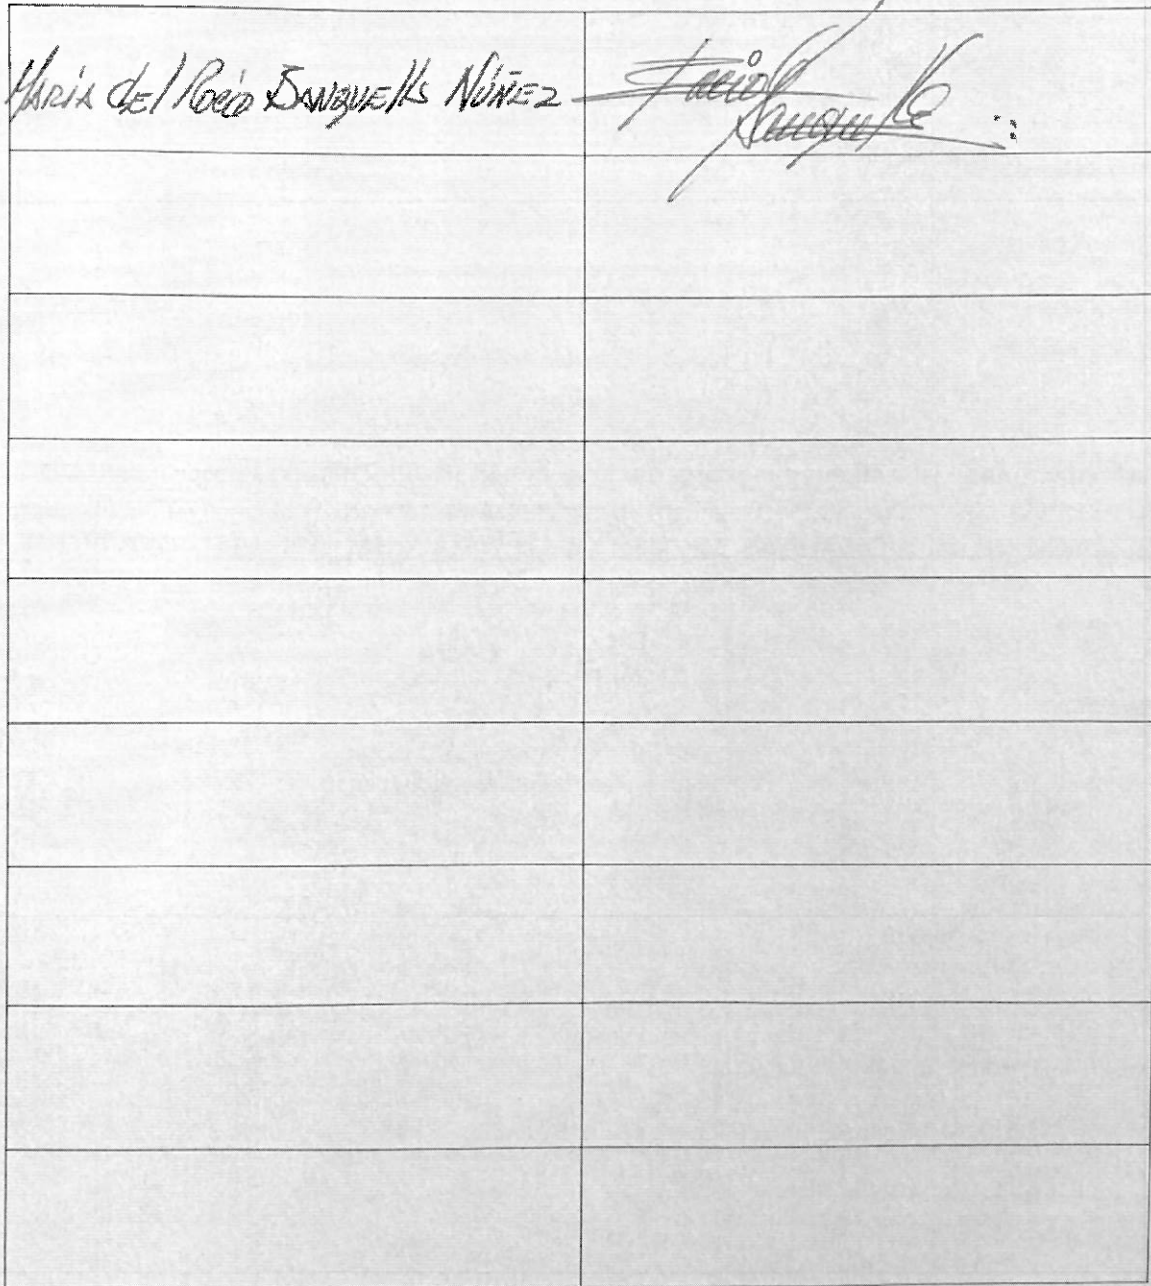 María del Rocío Banquells Núñez
Rocío
Banquells